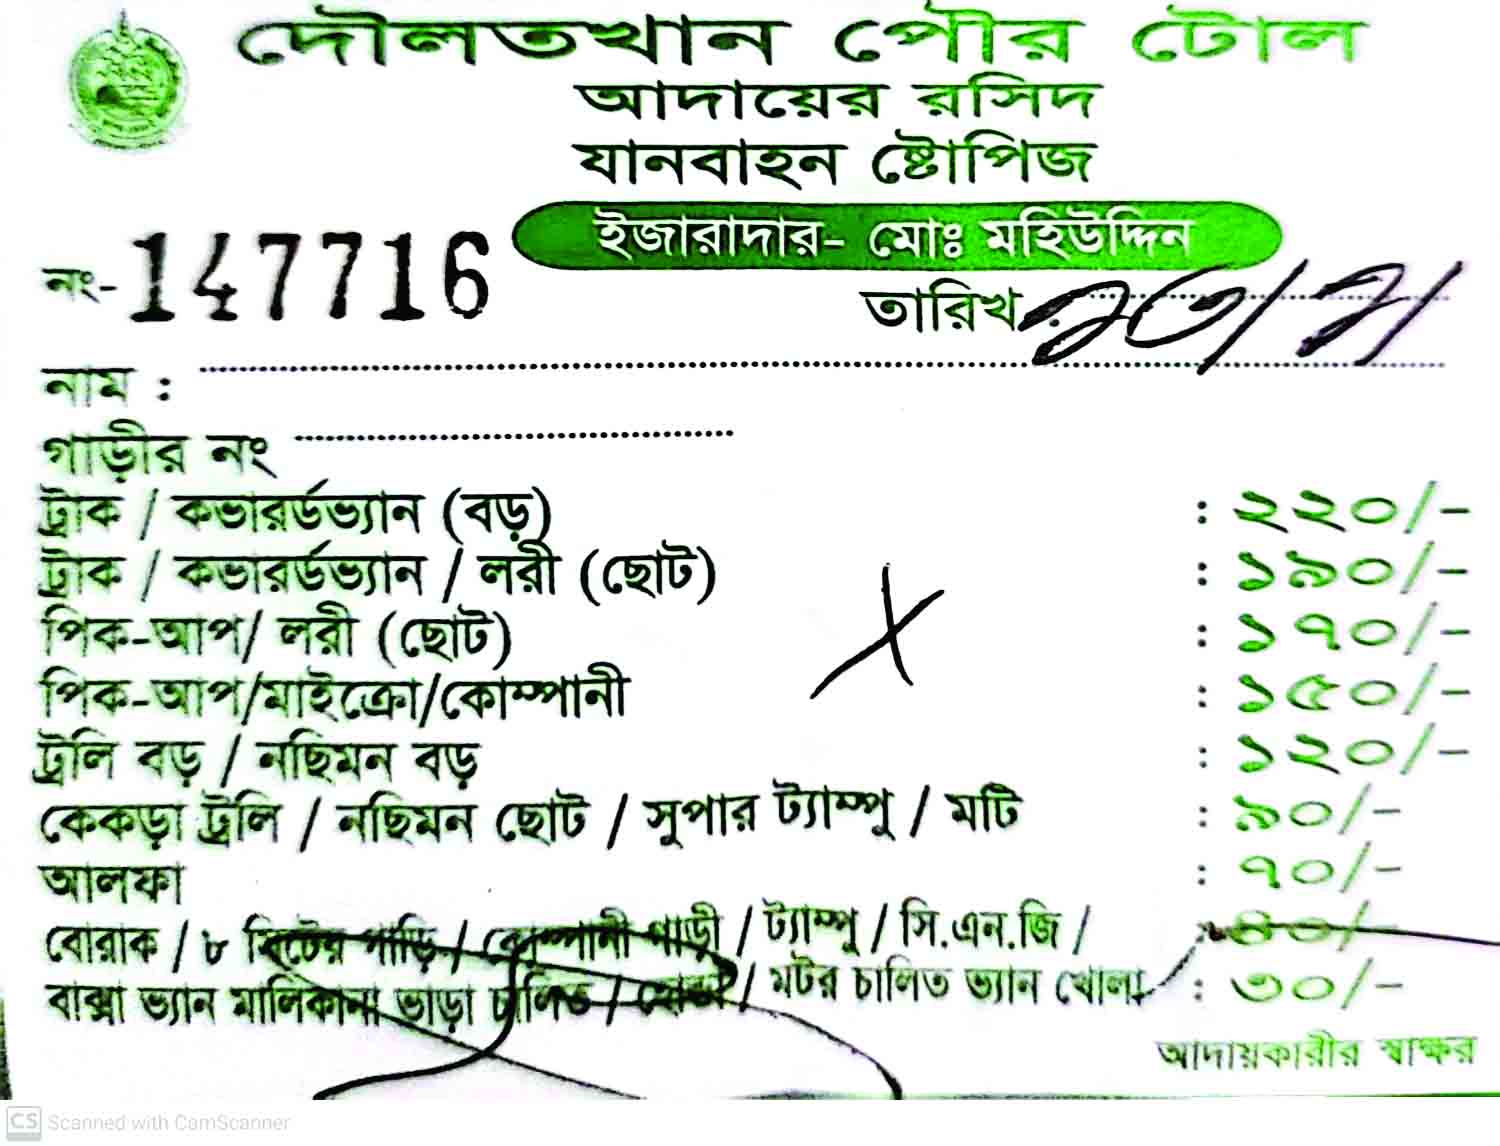 দৌলতখান পৌর টোল
আদায়ের রসিদ
যানবাহন ষ্টোপিজ
ইজারাদার- মোঃ মহিউদ্দিন
নং- 147716
তারিখ :
নাম :
গাড়ীর নং
ট্রাক / কভারর্ডভ্যান (বড়) : ২২০/-
ট্রাক / কভারর্ডভ্যান / লরী (ছোট) : ১৯০/-
পিক-আপ/ লরী (ছোট) : ১৭০/-
পিক-আপ/মাইক্রো/কোম্পানী : ১৫০/-
ট্রলি বড় / নছিমন বড় : ১২০/-
কেকড়া ট্রলি / নছিমন ছোট / সুপার ট্যাম্পু / মটি : ৯০/-
আলফা : ৭০/-
বোরাক / ৮ সিটের গাড়ি / কোম্পানী গাড়ী / ট্যাম্পু / সি.এন.জি / : ৪০/-
বাক্সা ভ্যান মালিকানা ভাড়া চালিত / হোন্ডা / মটর চালিত ভ্যান খোলা : ৩০/-
আদায়কারীর স্বাক্ষর
CS Scanned with CamScanner